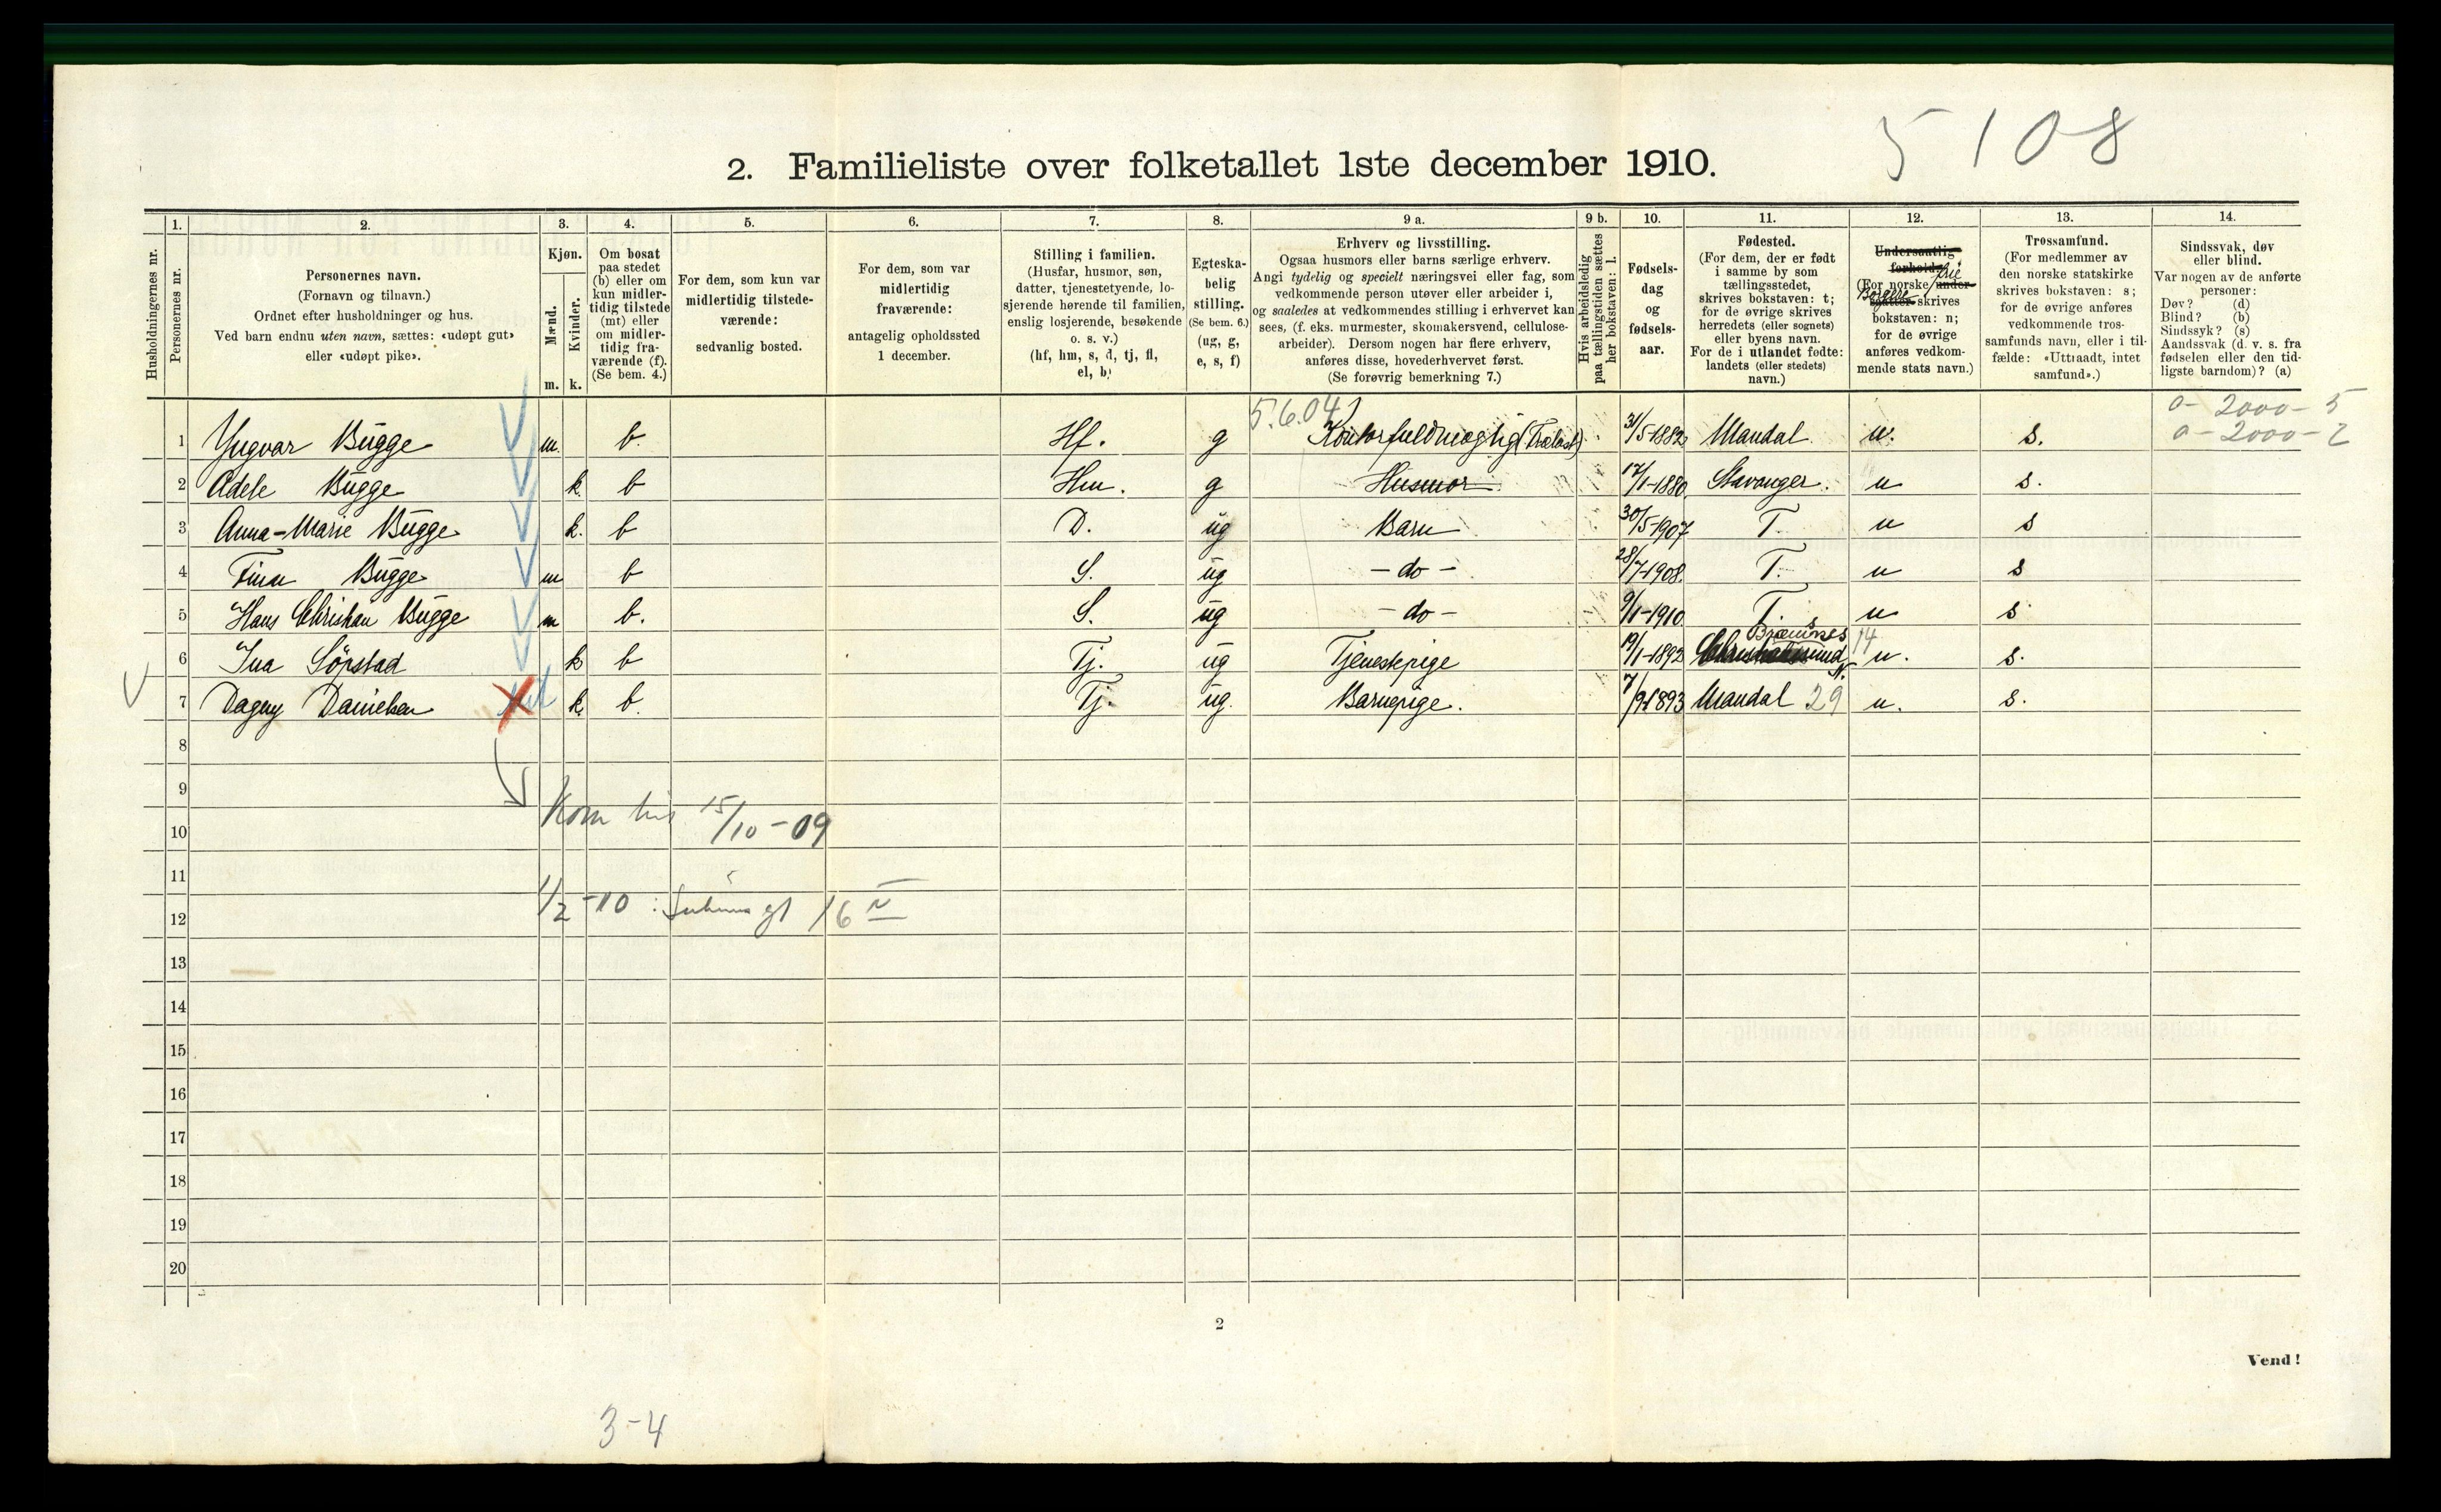 5108
2. Familieliste over folketallet 1ste december 1910.
1. 2. 3. 4. 5. 6. 7. 8. 9 a. 9 b. 10. 11. 12. 13. 14.
Husholdningernes nr.
Personernes nr.
Personernes navn.
(Fornavn og tilnavn.)
Ordnet efter husholdninger og hus.
Ved barn endnu uten navn, sættes: «udøpt gut»
eller «udøpt pike».
Kjøn.
Mænd.
Kvinder.
m. k.
Om bosat
paa stedet
(b) eller om
kun midler-
tidig tilstede
(mt) eller
om midler-
tidig fra-
værende (f).
(Se bem. 4.)
For dem, som kun var
midlertidig tilstede-
værende:
sedvanlig bosted.
For dem, som var
midlertidig
fraværende:
antagelig opholdssted
1 december.
Stilling i familien.
(Husfar, husmor, søn,
datter, tjenestetyende, lo-
sjerende hørende til familien,
enslig losjerende, besøkende
o. s. v.)
(hf, hm, s, d, tj, fl,
el, b)
Egteska-
belig
stilling.
(Se bem. 6.)
(ug, g,
e, s, f)
Erhverv og livsstilling.
Ogsaa husmors eller barns særlige erhverv.
Angi tydelig og specielt næringsvei eller fag, som
vedkommende person utøver eller arbeider i,
og saaledes at vedkommendes stilling i erhvervet kan
sees, (f. eks. murmester, skomakersvend, cellulose-
arbeider). Dersom nogen har flere erhverv,
anføres disse, hovederhvervet først.
(Se forøvrig bemerkning 7.)
Hvis arbeidsledig
paa tællingstiden sættes
her bokstaven: l.
Fødsels-
dag
og
fødsels-
aar.
Fødested.
(For dem, der er født
i samme by som
tællingsstedet,
skrives bokstaven: t;
for de øvrige skrives
herredets (eller sognets)
eller byens navn.
For de i utlandet fødte:
landets (eller stedets)
navn.)
Undersaatlig
forhold.
(For norske under-
saatter skrives
bokstaven: n;
for de øvrige
anføres vedkom-
mende stats navn.)
Borgere
Trossamfund.
(For medlemmer av
den norske statskirke
skrives bokstaven: s;
for de øvrige anføres
vedkommende tros-
samfunds navn, eller i til-
fælde: «Uttraadt, intet
samfund».)
Sindssvak, døv
eller blind.
Var nogen av de anførte
personer:
Døv? (d)
Blind? (b)
Sindssyk? (s)
Aandssvak (d. v. s. fra
fødselen eller den tid-
ligste barndom)? (a)
5.6.04
0-2000-5
0-2000-2
1 Yngvar Bugge m. b. Hf. g Kontorfuldmægtig (Trælast) 31/5-1882 Mandal n. s.
2 Adele Bugge k. b Hm. g Husmor 17/1-1880 Stavanger. n s.
3 Anna-Marie Bugge k. b D. ug Barn 30/5-1907 T. n s
4 Finn Bugge m b S. ug - do - 28/7-1908. T. n s
5 Hans Christian Bugge m b. S. ug - do - 9/1-1910. T. n s
6 Ina Sörstad k b Tj. ug Tjenestepige 19/1-1892 Christianssund N. Bremsnes 14 n. s.
7 Dagny Danielsen k. b. Tj. ug. Barnepige. 7/9-1893 Mandal 29 n. s.
8
9
Kom hit 15/10-09
10
11
1/2-10: gt 16
12
13
14
15
16
17
18
19
20
2
Vend!
3-4